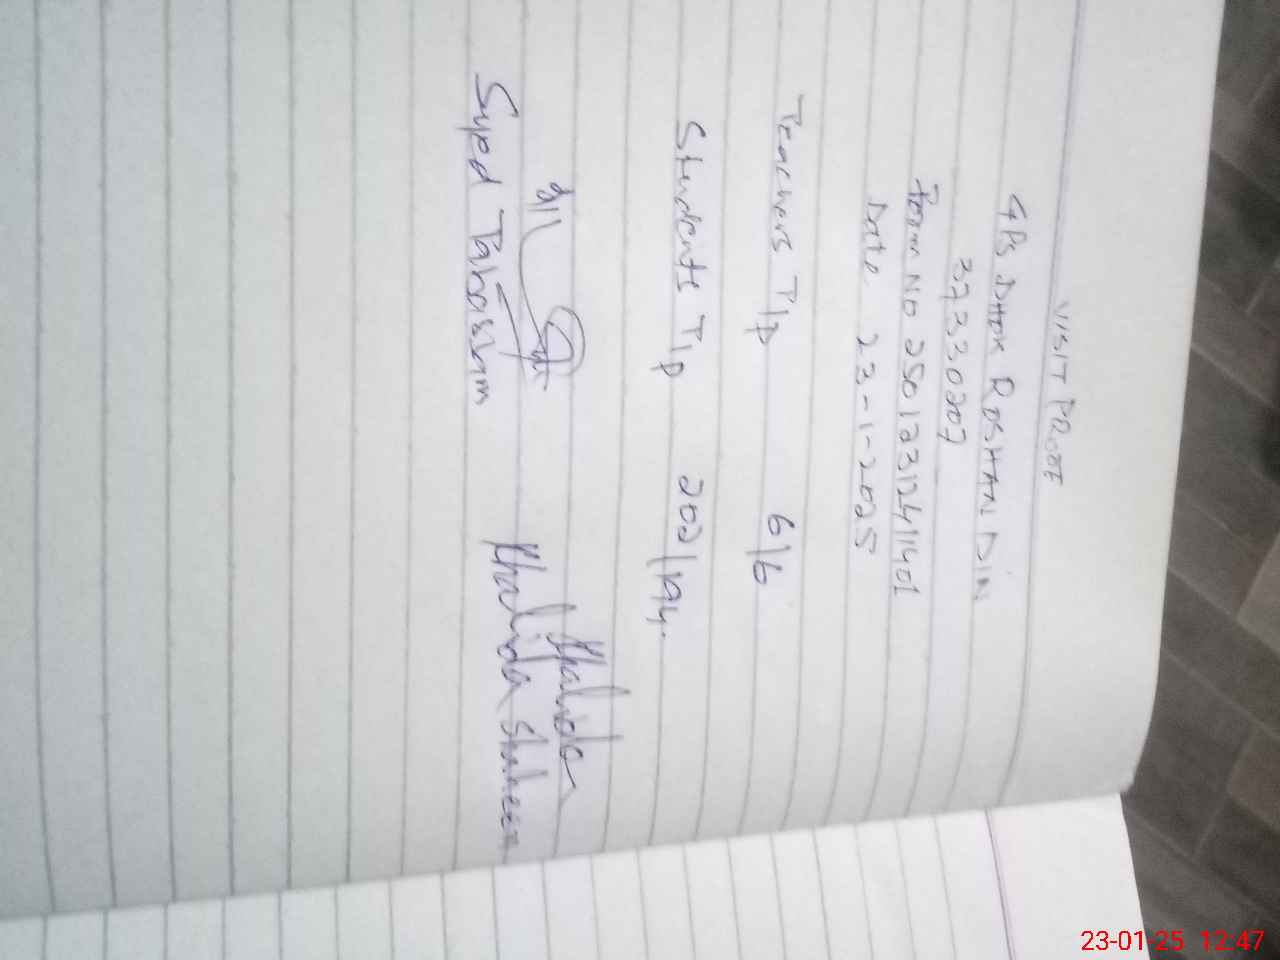 VISIT PROOF
GPS DHOK ROSHAN DIN
37330207
Form No 25012312411401
Date 23-1-2025
Teachers T/p 6/6
Students T/p 202/194.
Khalida
Syed Tabassum Khalida Shaheen
23-01-25 12:47